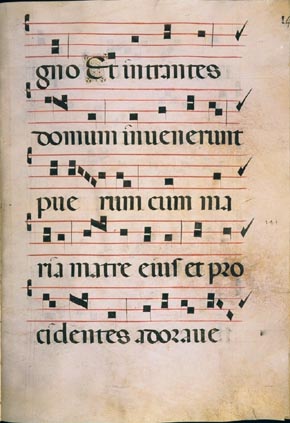 gno Et intrantes
domum invenerunt
pue rum cum ma
ria matre eius et pro
cidentes adorave